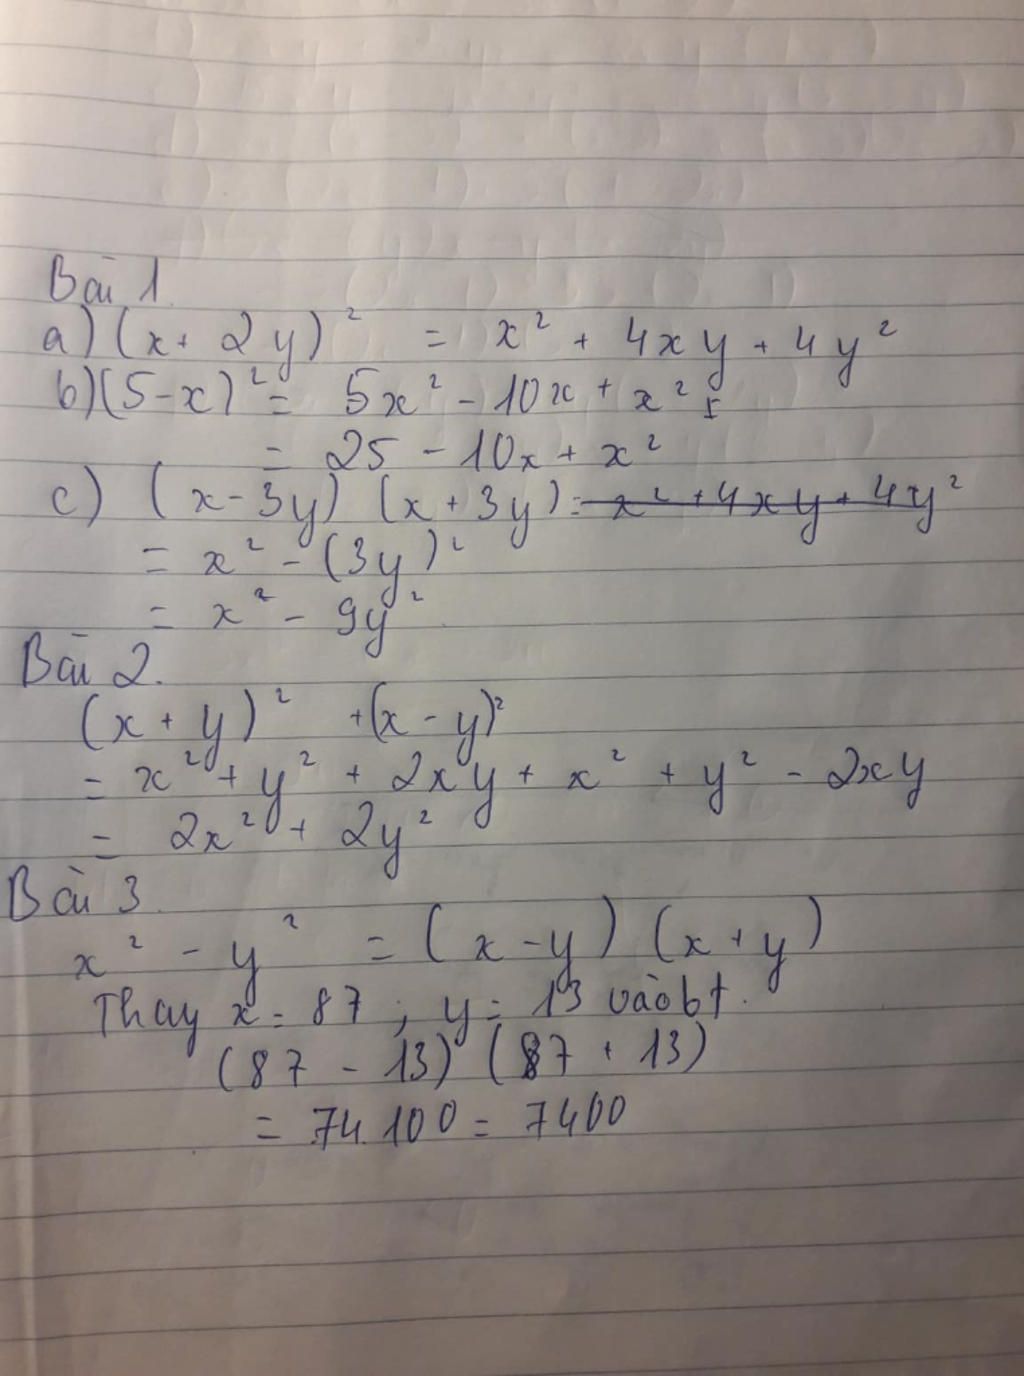 Bài 1
a) (x + 2y)² = x² + 4xy + 4y²
b) (5 - x)² = 5x² - 10x + x²
= 25 - 10x + x²
c) (x - 3y) (x + 3y) = x² + 4xy + 4y²
= x² - (3y)²
= x² - 9y²
Bài 2.
(x + y)² + (x - y)²
= x² + y² + 2xy + x² + y² - 2xy
= 2x² + 2y²
Bài 3
x² - y² = (x - y) (x + y)
Thay x = 87 ; y = 13 vào bt.
(87 - 13) (87 + 13)
= 74.100 = 7400